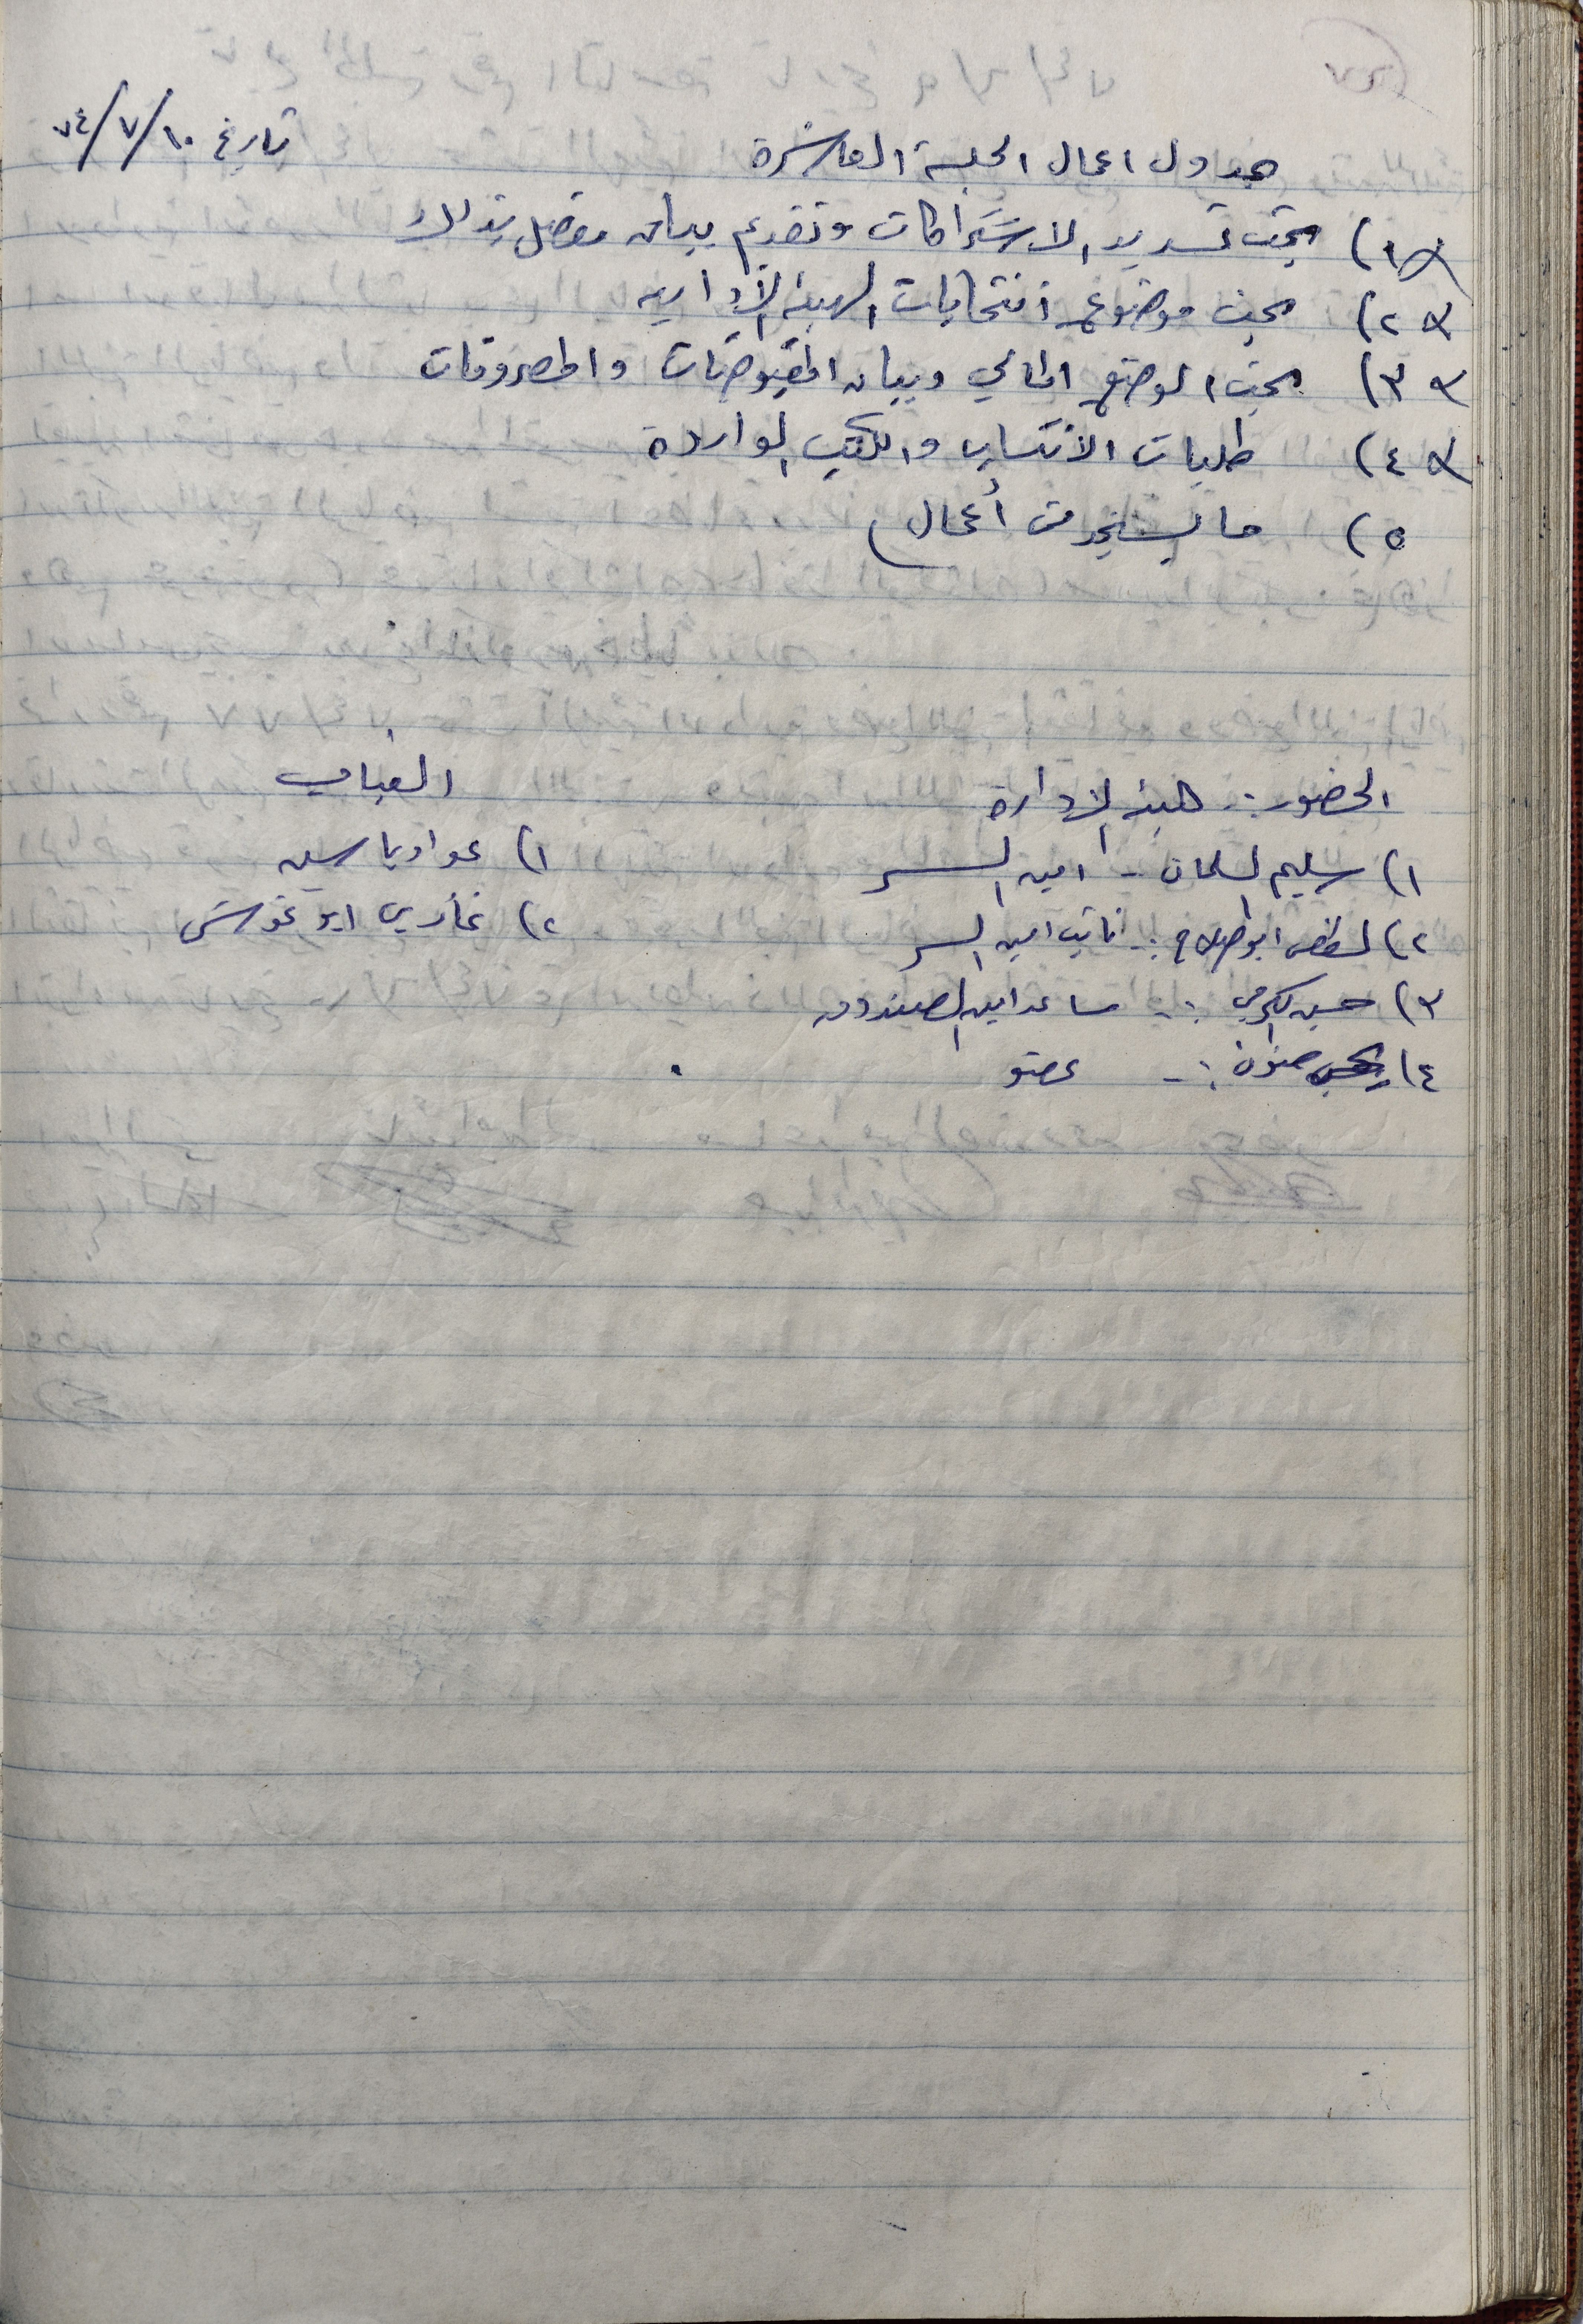 تاريخ ١٠/٧/٧٤
جدول اعمال الجلسة العاشرة
١) بحث تسديد الاشتراكات وتقديم بيان مفصل بذلك
٢) بحث موضوع انتخابات الهيئة الأدارية
٣) بحث الوضع المالي وبيان المقبوضات والمصروفات
٤) طلبات الأنتساب والكتب الواردة
٥) ما يستجد من أعمال
الحضور :- هيئة الادارة
١) سليم السلمان - امين السر
٢) ابو صلاح :- نائب امين السر
٣) حسن الكرمي :- مساعد امين الصندوق
٤) :- عضو
الغياب
١) عواد ياسين
٢) غازي ابو غوش